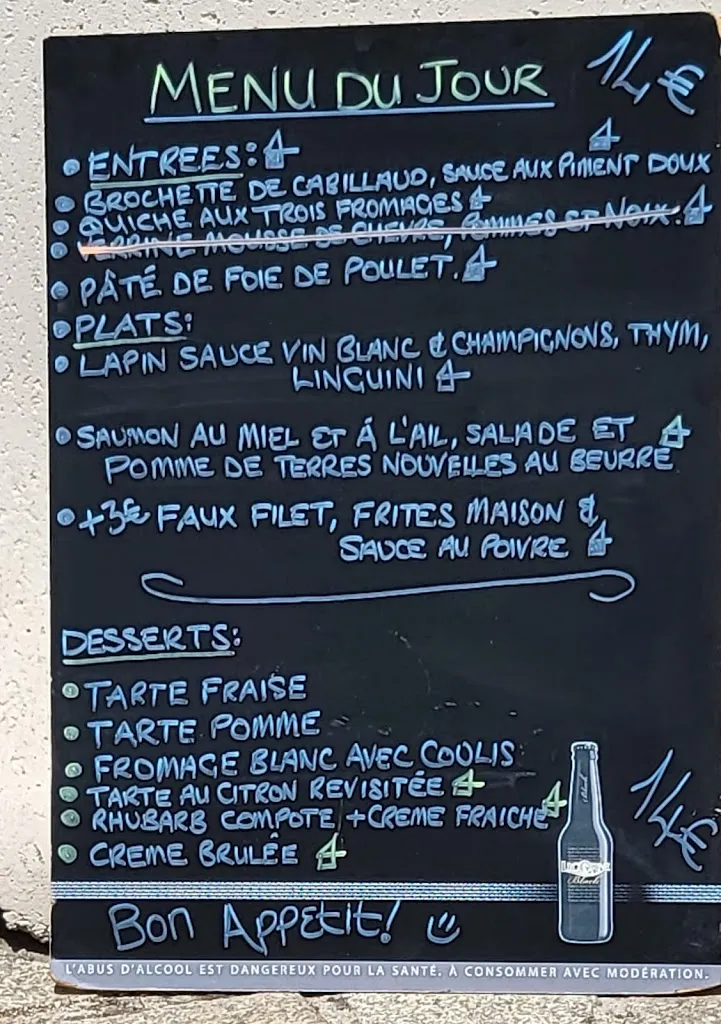 MENU DU JOUR
14€
ENTREES:
BROCHETTE DE CABILLAUD, SAUCE AUX PIMENT DOUX
QUICHE AUX TROIS FROMAGES
VERRINE MOUSSE DE CHEVRE, POMMES ET NOIX.
PÂTÉ DE FOIE DE POULET.
PLATS:
LAPIN SAUCE VIN BLANC & CHAMPIGNONS, THYM,
LINGUINI
SAUMON AU MIEL ET Á L'AIL, SALADE ET
POMME DE TERRES NOUVELLES AU BEURRE
+3€ FAUX FILET, FRITES MAISON &
SAUCE AU POIVRE
DESSERTS:
TARTE FRAISE
TARTE POMME
FROMAGE BLANC AVEC COULIS
TARTE AU CITRON REVISITÉE
RHUBARB COMPOTE + CREME FRAICHE
CREME BRULÉE
14€
LICORNE
Black
Bon Appetit!
L'ABUS D'ALCOOL EST DANGEREUX POUR LA SANTÉ. À CONSOMMER AVEC MODÉRATION.